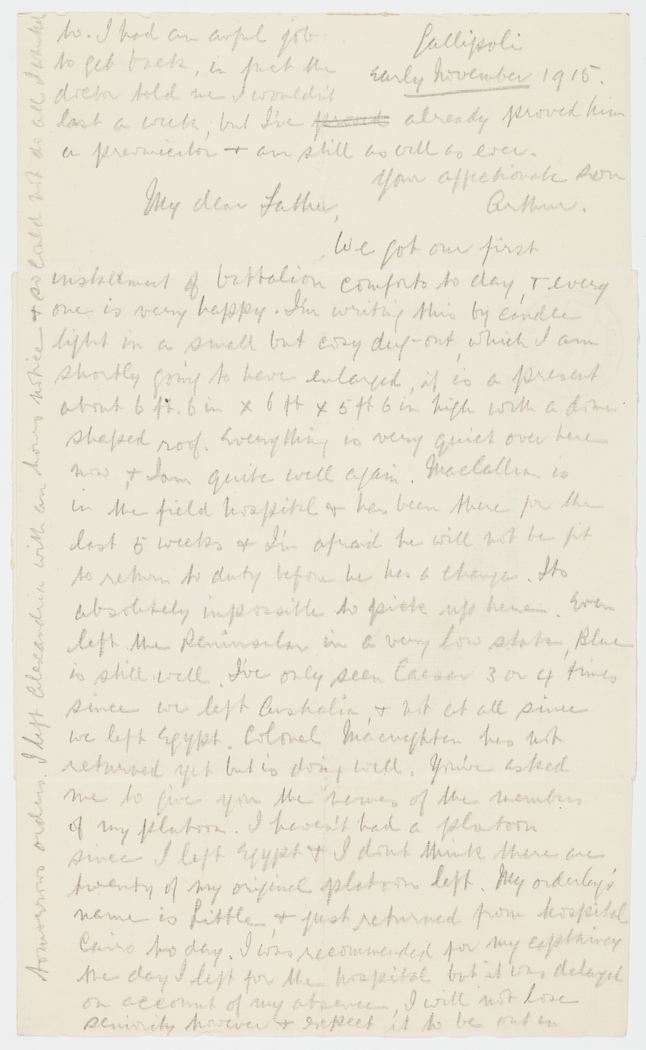 Gallipoli
Early November 1915.
My dear Father,
We got our first
instalment of battalion comforts to day, & every
one is very happy. I'm writing this by candle
light in a small but cosy dug-out, which I am
shortly going to have enlarged, it is a present
about 6 ft. 6 in x 6 ft x 5 ft 6 in high with a dome
shaped roof. Everything is very quiet over here
now, & I am quite well again. MacCallum is
in the field hospital & has been there for the
last 5 weeks & I'm afraid he will not be fit
to return to duty before he has a change. Its
absolutely impossible to pick up here.
left the Peninsular in a very low state, Blue
is still well. I've only seen Caesar 3 or 4 times
since we left Australia, & not at all since
we left Egypt. Colonel Macnaghten has not
returned yet but is doing well. You've asked
me to give you the names of the members
of my platoon. I haven't had a platoon
since I left Egypt & I dont think there are
twenty of my original platoon left. My orderley's
name is Little, & just returned from hospital
Cairo to day. I was recommended for my captaincy
the day I left for the hospital but it was delayed
on account of my absence, I will not lose
seniority however & expect it to be out in
tomorrows orders. I left Alexandria with an hours notice & so could not do all I wanted
to. I had an awful job
to get back, in fact the
doctor told me I wouldn't
last a week, but I've proved already proved him
a prevaricator & am still as well as ever.
Your affectionate son
Arthur.